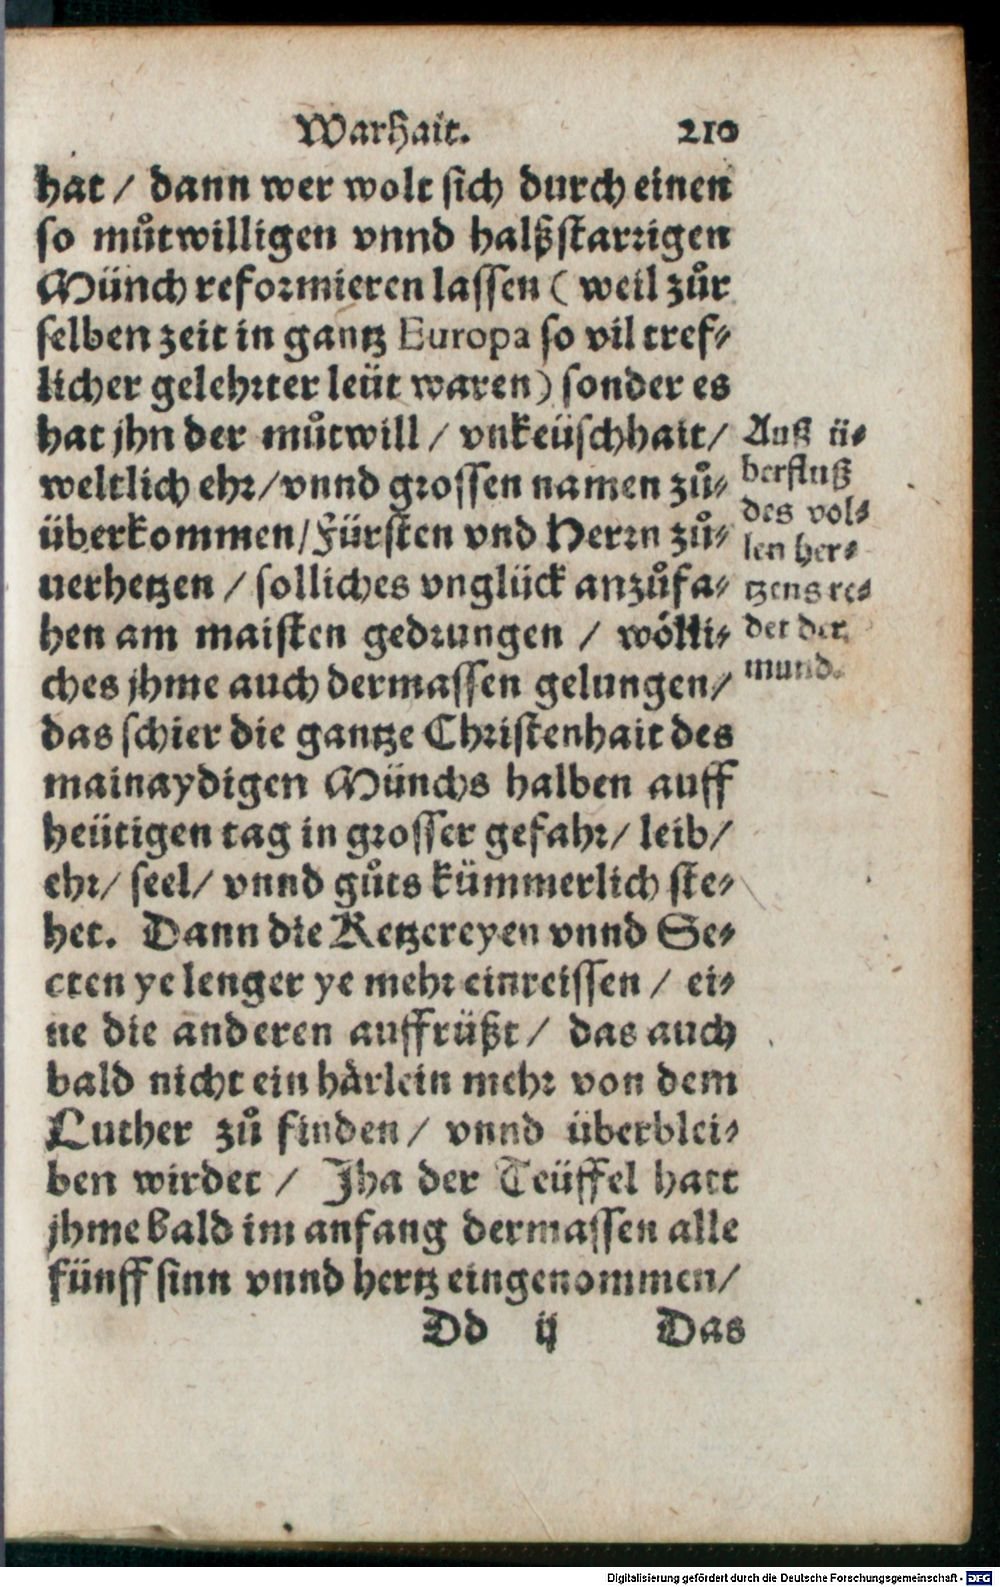 Warhait. 210
hat / dann wer wolt sich durch einen
so můtwilligen vnnd halßstarrigen
Münch reformieren lassen ( weil zůr
selben zeit in gantz Europa so vil tref-
licher gelehrter leüt waren ) sonder es
hat jhn der můtwill / vnkeüschhait /
weltlich ehr / vnnd grossen namen zů-
überkommen / Fürsten vnd Herrn zů-
uerhetzen / solliches vnglück anzůfa-
hen am maisten gedrungen / wölli-
ches jhme auch dermassen gelungen /
das schier die gantze Christenhait des
mainaydigen Münchs halben auff
heütigen tag in grosser gefahr / leib /
ehr / seel / vnnd gůts kümmerlich ste-
het. Dann die Ketzereyen vnnd Se-
cten ye lenger ye mehr einreissen / ei-
ne die anderen auffrüßt / das auch
bald nicht ein härlein mehr von dem
Luther zů finden / vnnd überblei-
ben wirdet / Jha der Teüffel hatt
jhme bald im anfang dermassen alle
fünff sinn vnnd hertz eingenommen /
Dd ij Das
Auß ü-
berfluß
des vol-
len her-
tzens re-
det der
mund.
Digitalisierung gefördert durch die Deutsche Forschungsgemeinschaft - DFG